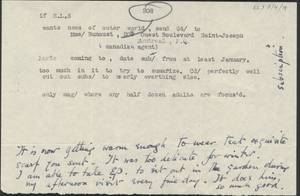 208
if H.L.S
wants news of outer world, send $4/ to
Mme/ Dumount, 208 Ouest Boulevard Saint-Joseph
Montreal, P.Q.
( canadian agent)
coming to, date sub/ from at least January.
too much in it to try to sumarize. CJ/ perfectly well
cut out subs/ to nearly everything else.
only mag/ where any half dozen adults are focus'd.
subscription.
It is now getting warm enough to wear that exquisite
scarf you sent. It was too delicate for winter.
I am able to take EP. to sit out in the garden during
my afternoon visit every fine day. It does him
so much good.